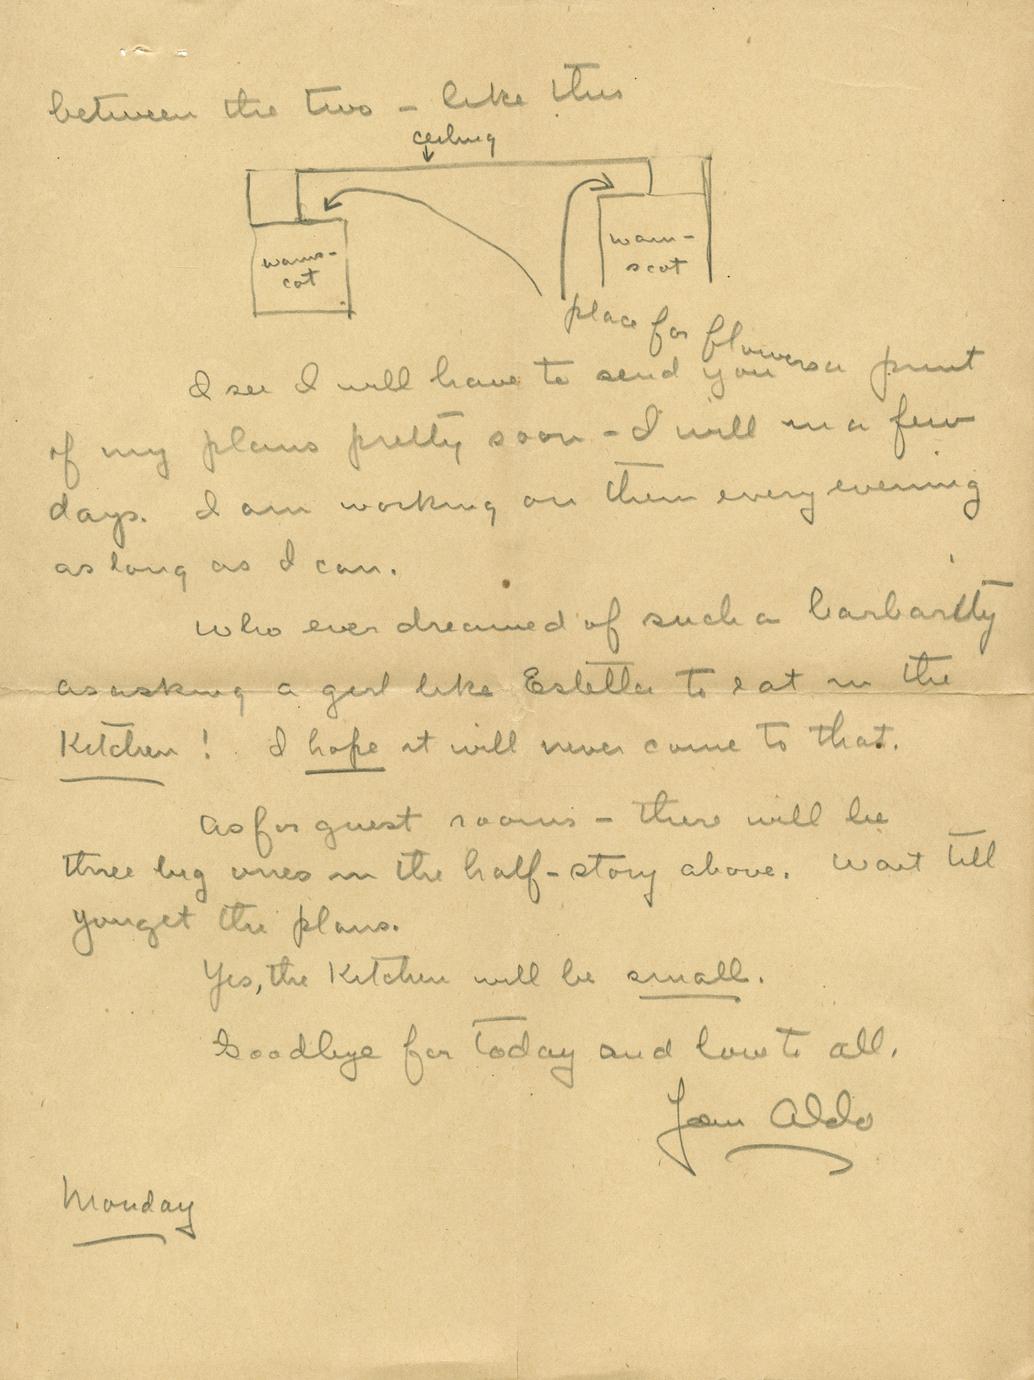 between the two – like this
ceiling
wains-
cot
wain-
scot
place for flowers
I see I will have to send you a print
of my plans pretty soon – I will in a few
days. I am working on them every evening
as long as I can.
Who ever dreamed of such a barbarity
as asking a girl like Estella to eat in the
Kitchen! I hope it will never come to that.
As for guest rooms – there will be
three big ones in the half-story above. Wait till
you get the plans.
Yes, the Kitchen will be small.
Goodbye for today and love to all.
Your Aldo
Monday